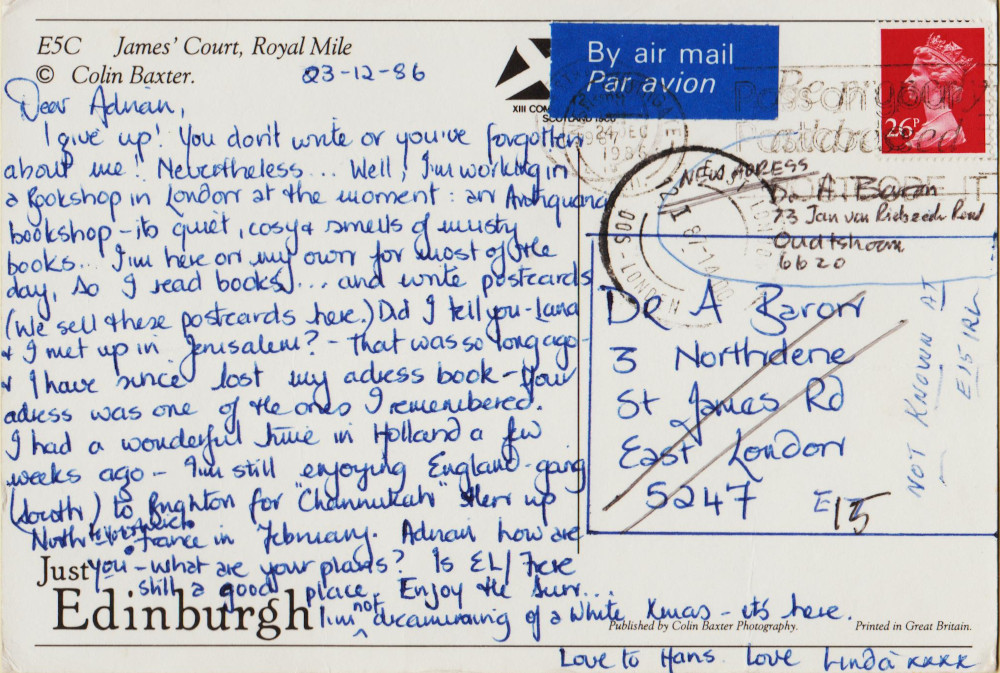 E5C James' Court, Royal Mile
© Colin Baxter.
23-12-86
Dear Adrian,
I give up! You don't write or you've forgotten
about me! Nevertheless... Well, I'm working in
a Bookshop in London at the moment: an Antiquarian
bookshop - its quiet, cosy & smells of musty
books... I'm here on my own for most of the
day, so I read books... and write postcards
(We sell these postcards here.) Did I tell you - Lana
& I met up in Jerusalem? - that was so long ago -
& I have since lost my adress book - Your
adress was one of the ones I remembered.
I had a wonderful time in Holland a few
weeks ago - I'm still enjoying England - going
(South) to Brighton for "Channukah" then up
North to Norwich
France in February. Adrian how are
you - what are your plans? Is EL/ here
still a good place. Enjoy the Sun...
I'm not dreamining of a White Xmas - its here.
Love to Hans. Love Linda xxxx
Just
Edinburgh
Published by Colin Baxter Photography.
Printed in Great Britain.
XIII COM
SCOTLAND 1986
By air mail
Par avion
26P
24 DEC
1986
LONDON
NEW ADRESS
Dr. A Baron
73 Jan van Riebeeck Road
Oudtshoorn
6620
DR A Baron
3 Northdene
St James Rd
East London
5247
E15
NOT KNOWN AT
E15 1RL